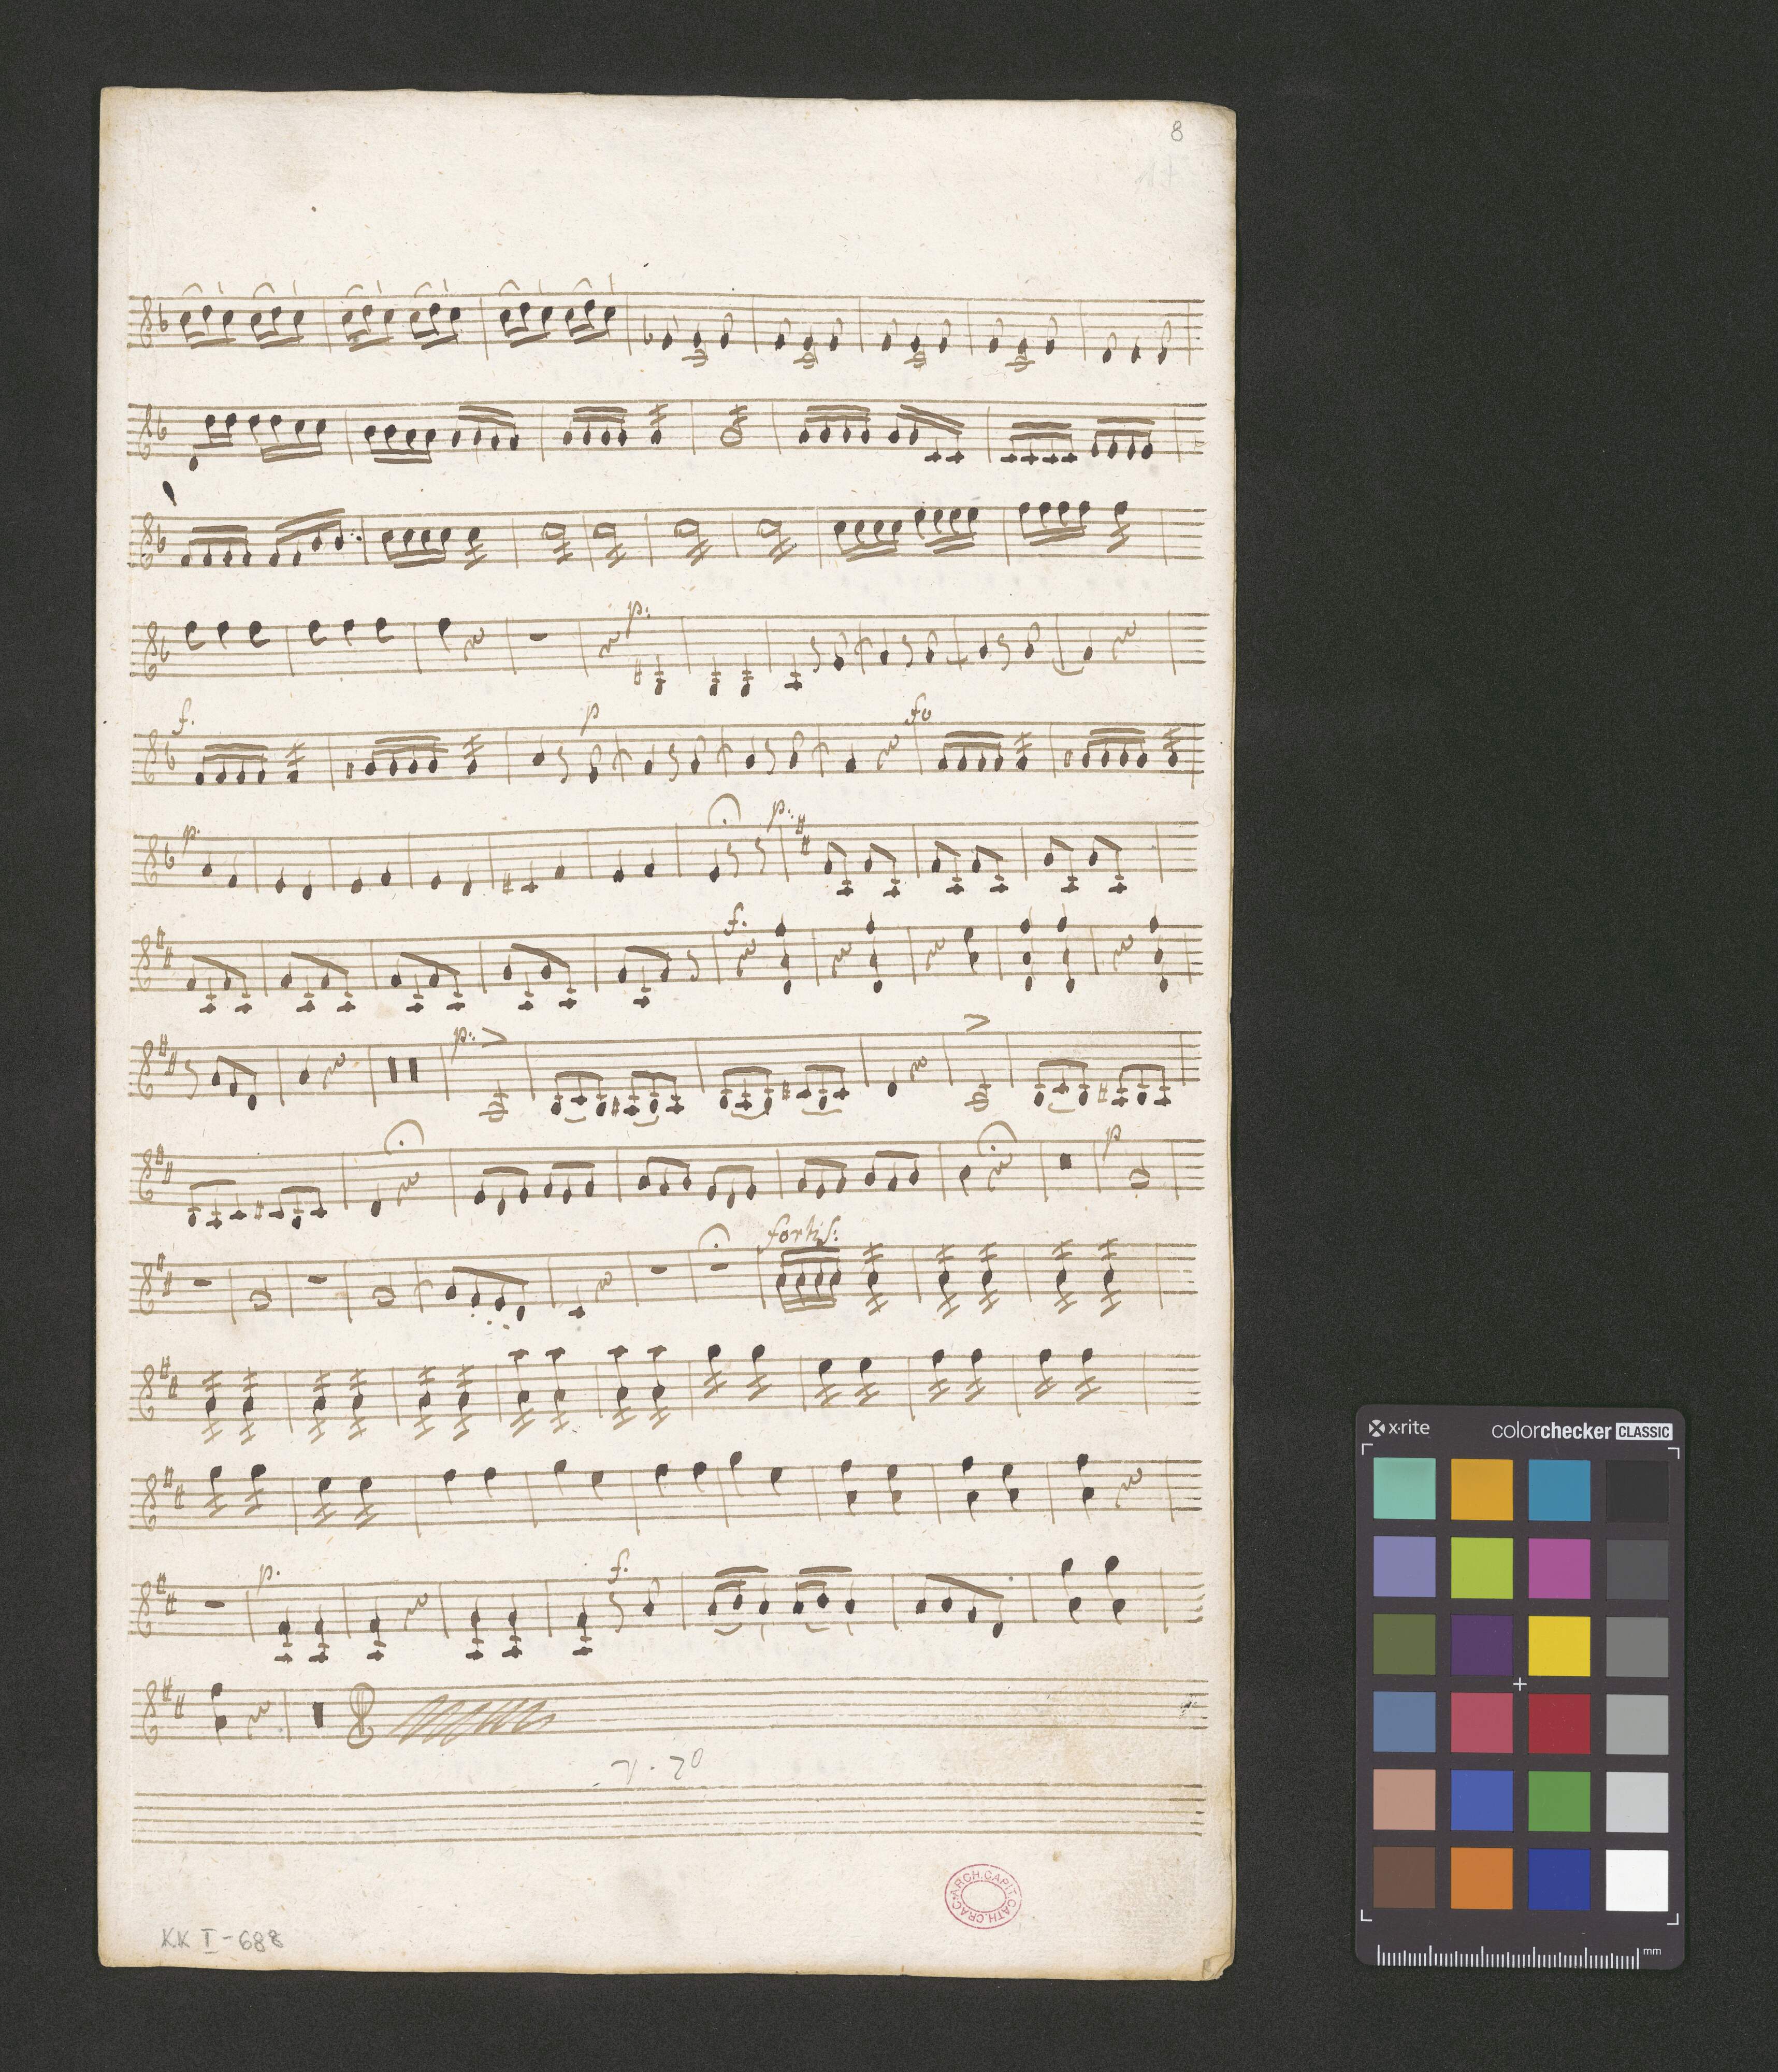 8
p:
f.
p
fo
p.
p:
f.
p:
p
fortiss:
p.
f.
ARCH.CAPIT.CATH.CRAC.
KK I-688
x·rite
colorchecker CLASSIC
mm